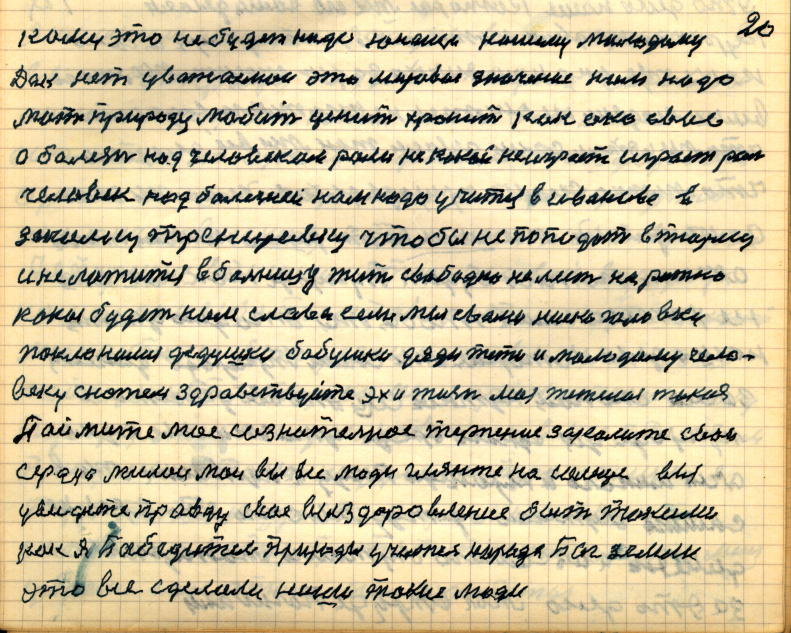 20
кому это не будет надо юноши нашему молодому
Даж нет уважаемои это мировое значение нам надо
мать природу любить ценить хранить как око свое
о болезн над человеком роли не какой неиграет играет рол
человек над болезней нам надо учится в иванове в
закалку тренировку чтобы не попадат в тюрму
и не ложится в болницу жит свободно на
какая будет нам слава если мы свою голову
поклонимся дедушки бабушки дяди тети и молодому чело-
веку скажем здравствуйте эх и жизн моя тяжелая такая
Поймите мое сознателное терпение закалите свои
сердца милои мои вы все люди гляньте на солнце вы
увидите правду свое выздоровление быт такими
как я Победител Природы учител народа Бог земли
это все сделали наши такие люди